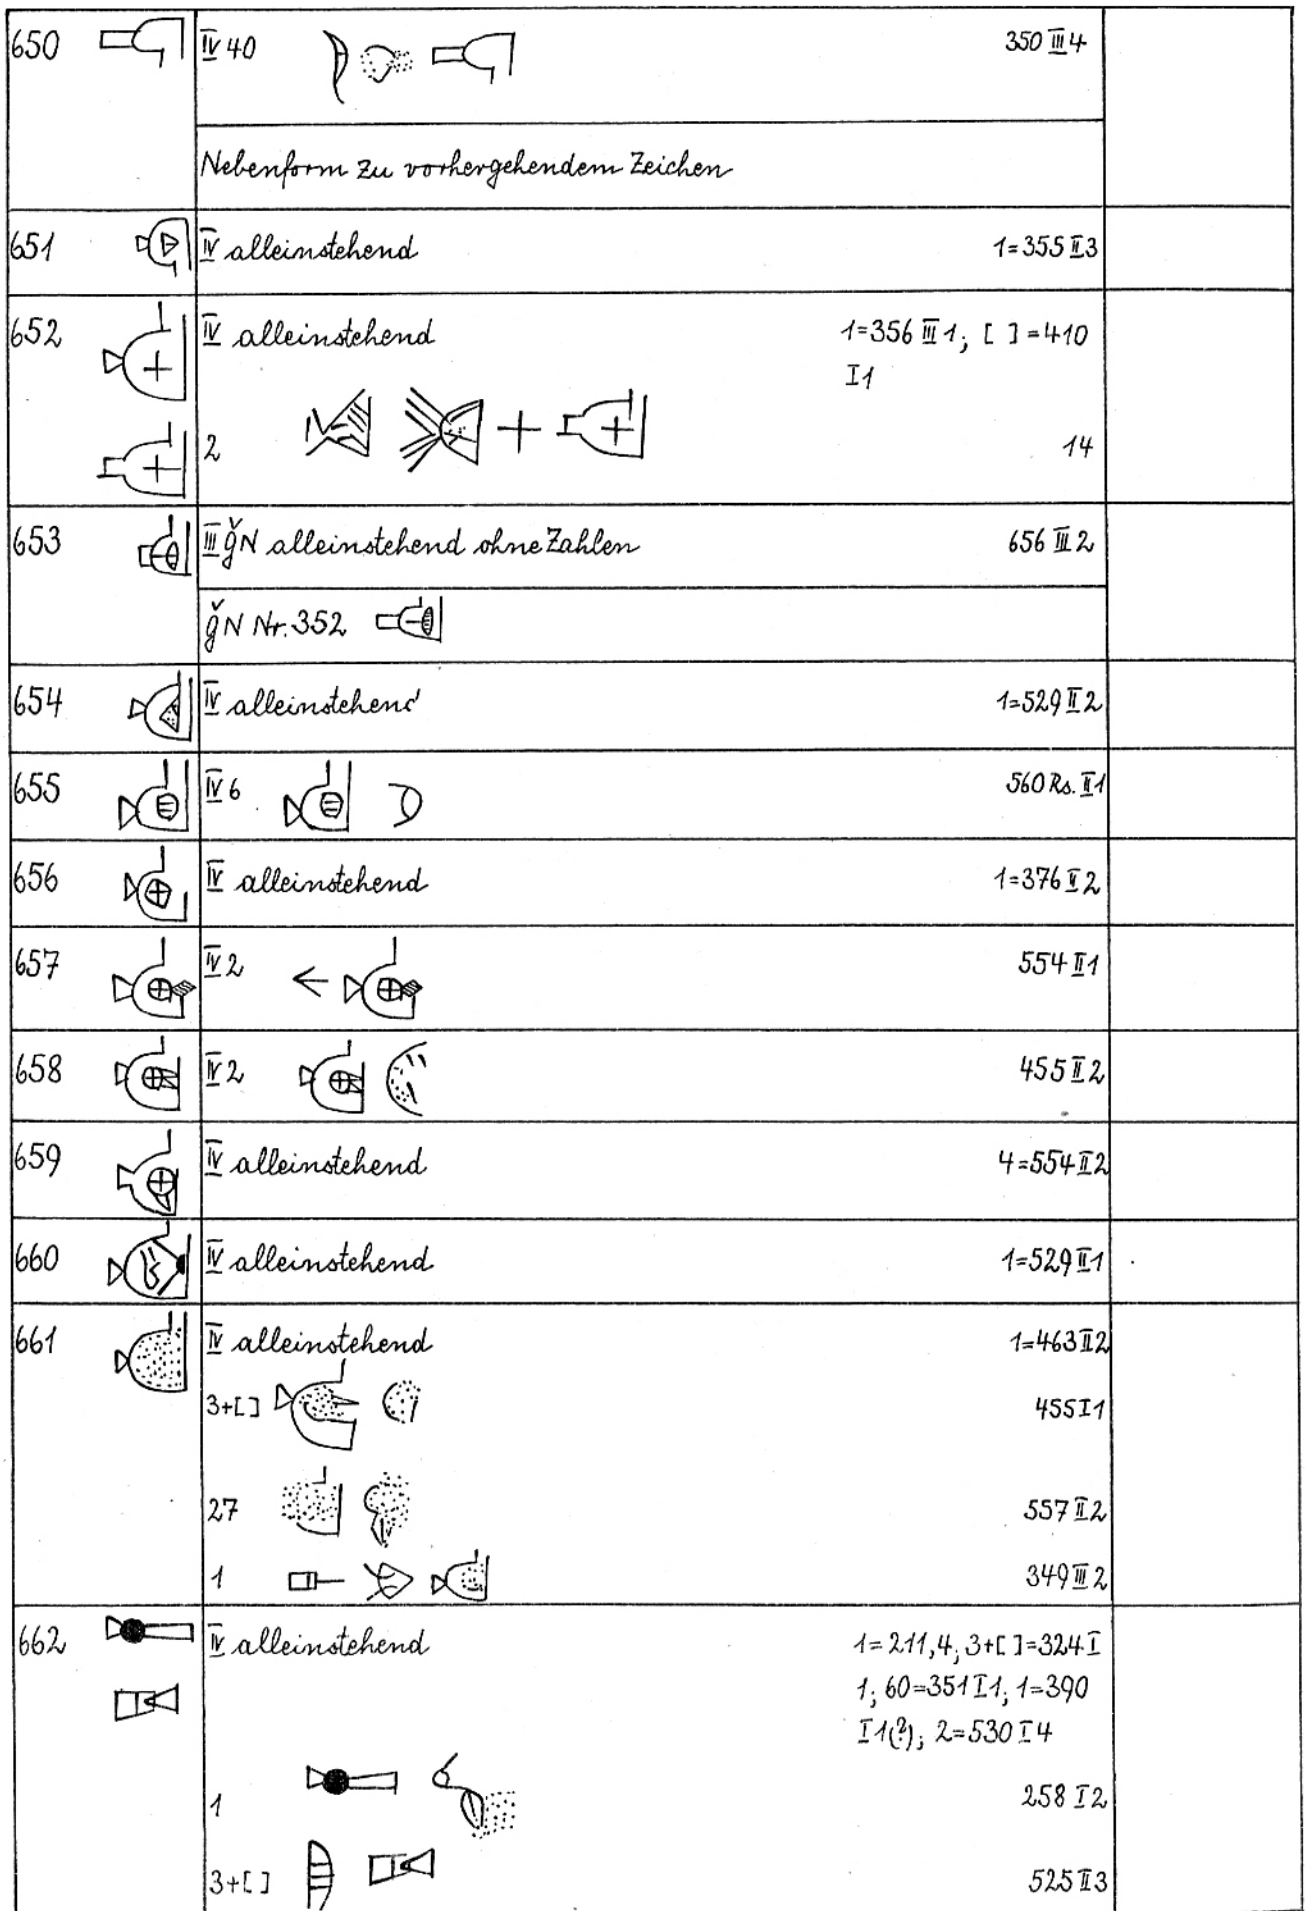 650 IV 40 350 III 4
Nebenform zu vorhergehendem Zeichen
651 IV alleinstehend 1=355 II 3
652 IV alleinstehend 1=356 III 1; [ ]=410
I 1
2 14
653 III ǧN alleinstehend ohne Zahlen 656 III 2
ǧN Nr. 352
654 IV alleinstehend 1=529 II 2
655 IV 6 560 Rs. II 1
656 IV alleinstehend 1=376 II 2
657 IV 2 554 II 1
658 IV 2 455 II 2
659 IV alleinstehend 4=554 II 2
660 IV alleinstehend 1=529 II 1
661 IV alleinstehend 1=463 II 2
3+[ ] 455 I 1
27 557 II 2
1 349 III 2
662 IV alleinstehend 1=211,4; 3+[ ]=324 I
1; 60=351 I 1; 1=390
I 1(?); 2=530 I 4
1 258 I 2
3+[ ] 525 II 3